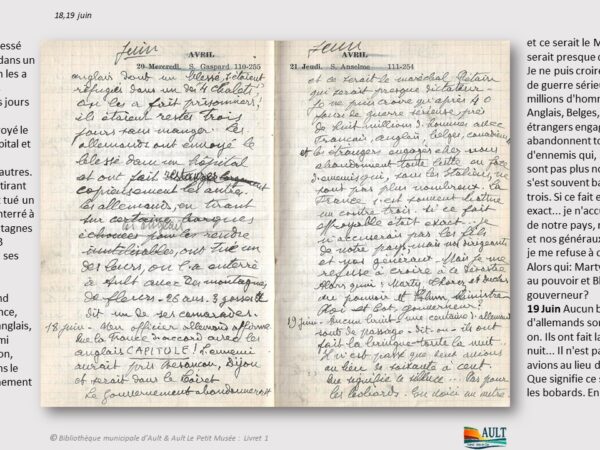 18,19 juin
essé
dans un
n les a
s jours
oyé le
pital et
autres.
tirant
t tué un
nterré à
tagnes
3
ses
nd
nce,
anglais,
mi
on,
ns le
nement
Juin
AVRIL
20 Mercredi. S. Gaspard 110-255
anglais dont un blessé s'étaient
réfugiés dans un des 4 chalets!
On les a fait prisonniers!
ils étaient restés trois
jours sans manger. Les
allemands ont envoyé le
blessé dans un hôpital
et ont fait
copieusement les autres.
les allemands, en tirant
sur certaines barques
anglaises
échouées pour les rendre
inutilisables, ont tué un
des leurs, on l'a enterré
à Ault avec des montagnes
de fleurs. 26 ans. 3 gosses
dit un de ses camarades.
18 juin. Un officier allemand affirme
que la France d'accord avec les
anglais CAPITULE! L'ennemi
aurait pris Besançon, Dijon
et serait dans le Loiret
Le gouvernement abandonnerait
Juin
AVRIL
21 Jeudi. S. Anselme 111-254
et ce serait le maréchal Pétain
qui serait presque dictateur.
Je ne puis croire qu'après 40
jours de guerre sérieuse, près
de huit millions d'hommes avec
Français, anglais, belges, canadiens
et les étrangers engagés chez nous
abandonnent toute lutte en face
d'ennemis qui, sans les Italiens, ne
sont pas plus nombreux. La
France s'est souvent battue
un contre trois. Si ce fait
effroyable était exact. je
n'accuserais pas les fils
de notre pays, mais nos dirigeants
et nos généraux. Mais je me
refuse à croire à ce désastre
Alors qui: Marty, Thorez et Duclos
au pouvoir et Blum ministre
Roi et Cot, gouverneur?
19 juin. Aucun bruit. une centaine d'allemands
sont de passage. dit-on. ils ont
fait la bringue toute la nuit
Il n'est passé que deux avions
au lieu de soixante à cent.
Que signifie ce silence...
les bobards. En voici un autre
et ce serait le M
serait presque d
Je ne puis croire
de guerre sérieu
millions d'homm
Anglais, Belges,
étrangers engag
abandonnent to
d'ennemis qui,
sont pas plus no
s'est souvent ba
trois. Si ce fait e
exact... je n'accu
de notre pays, m
et nos générau
je me refuse à c
Alors qui: Marty
au pouvoir et Bl
gouverneur?
19 Juin Aucun b
d'allemands son
on. Ils ont fait la
nuit... Il n'est pa
avions au lieu d
Que signifie ce s
les bobards. En
© Bibliothèque municipale d'Ault & Ault Le Petit Musée : Livret 1
AULT